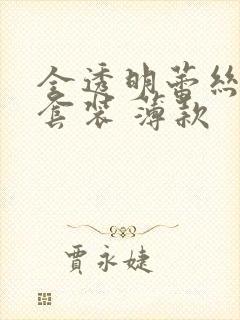 全透明蕾丝
套装 薄款
贾永婕